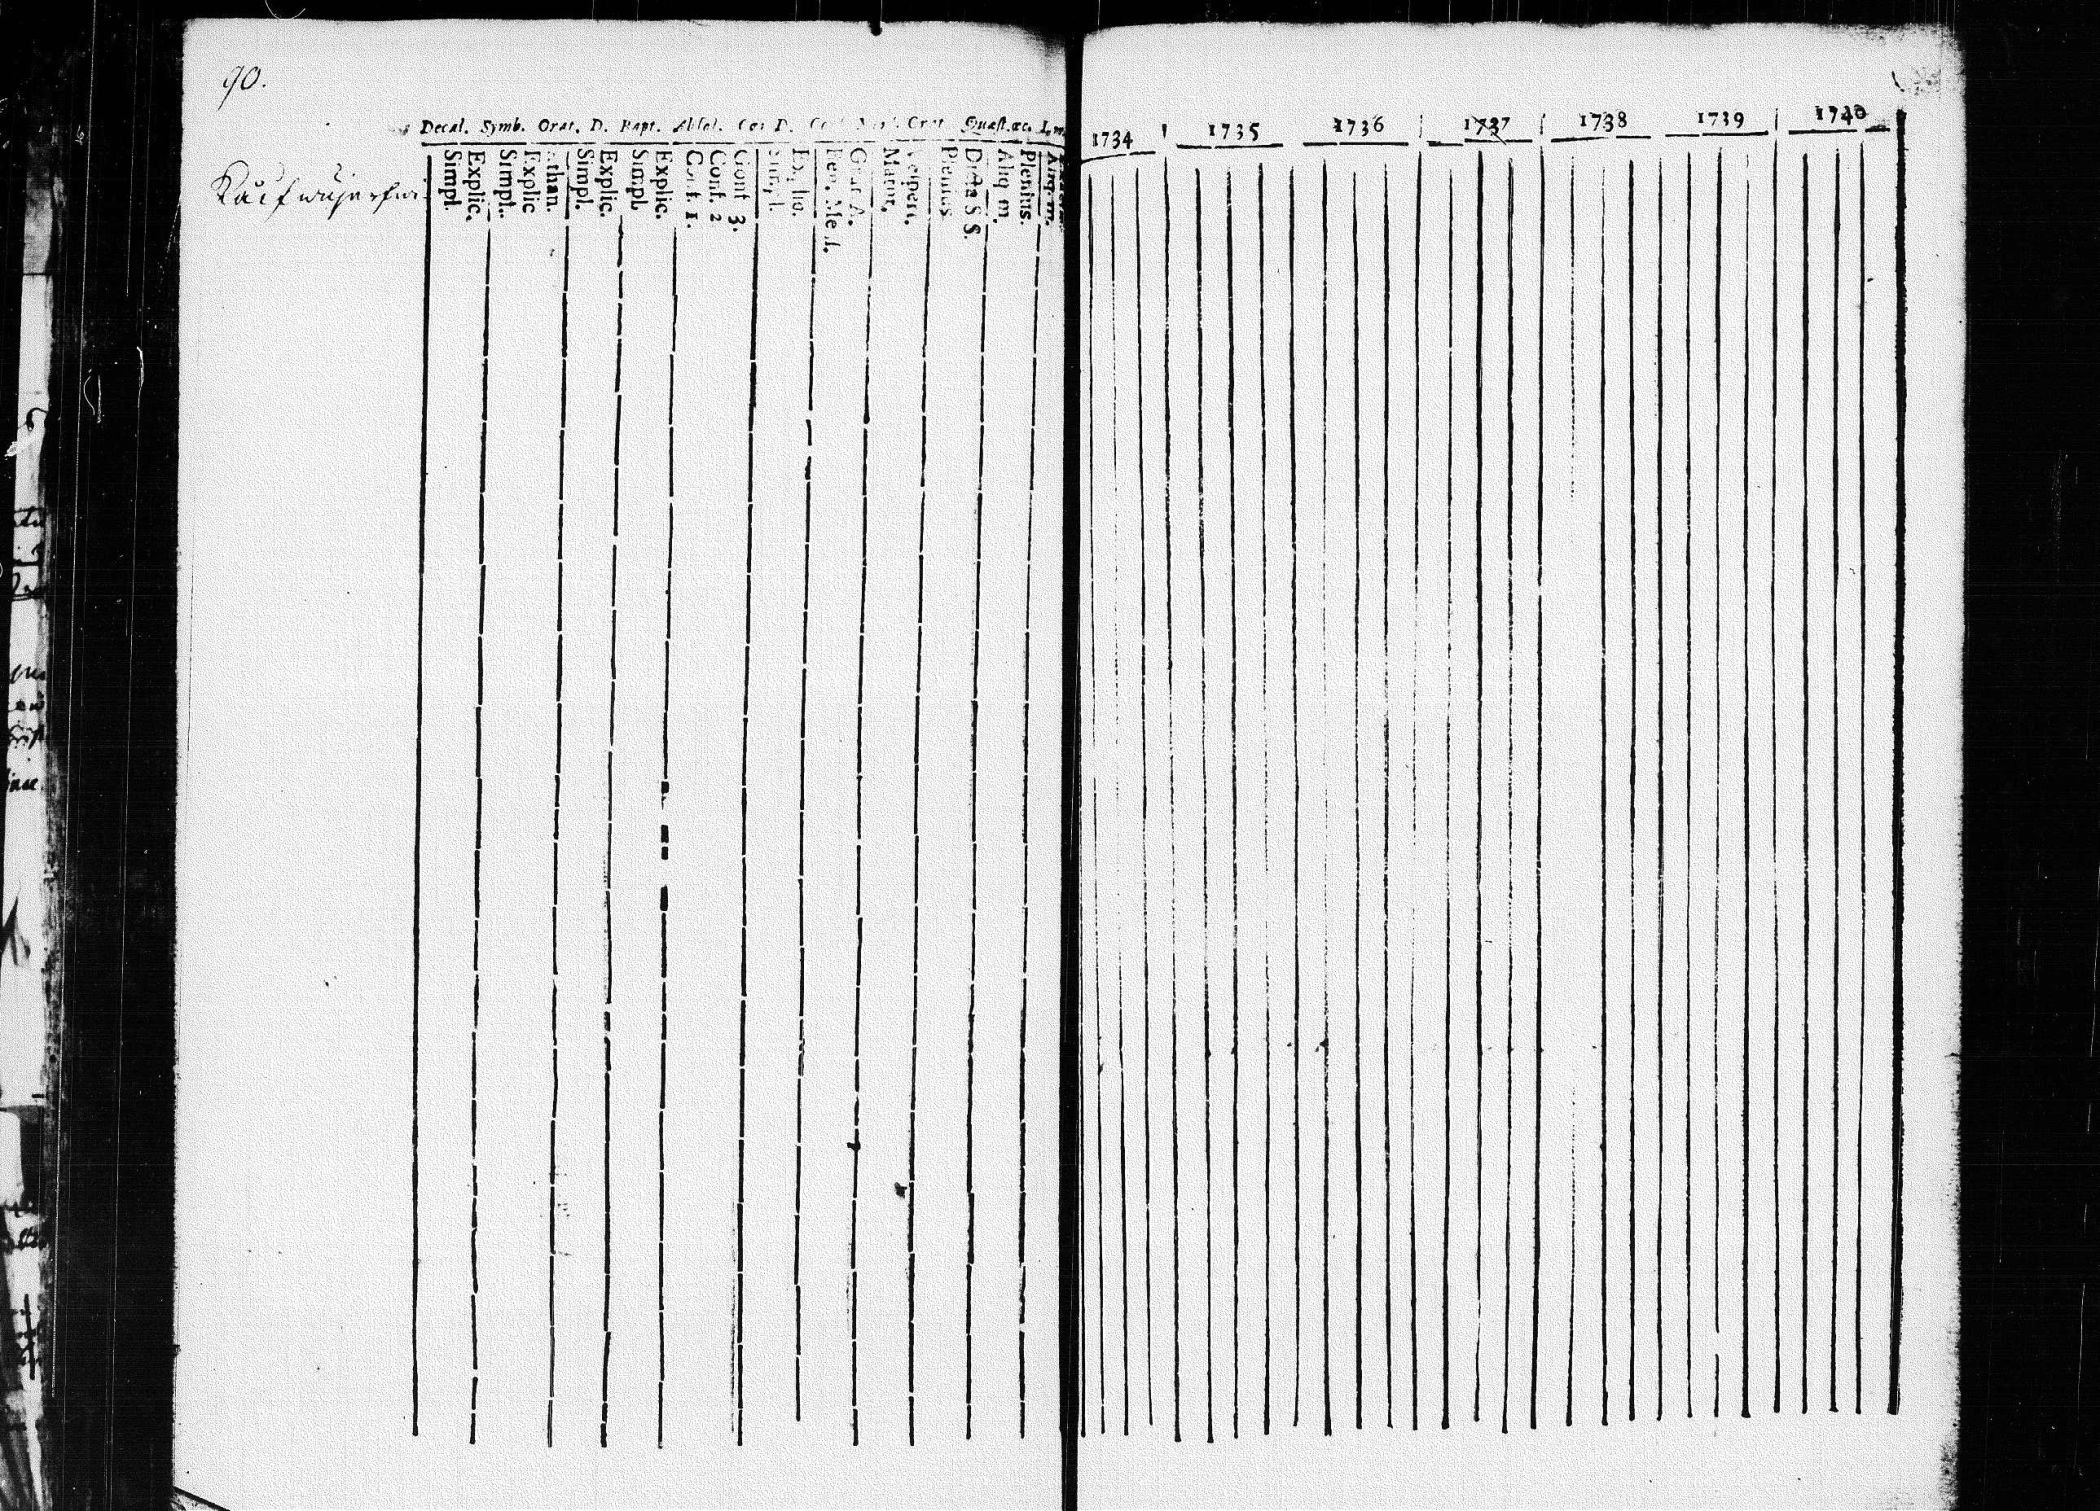 90.
Decal. Symb. Orat. D. Bapt. Absol. Cœ D. Orat. Quæst. æc.
Simpl. Explic. Simpl. Explic Athan. Simpl. Explic. Simpl. Explic. Conf. 1. Conf. 2 Conf 3. Grat. A. Matut. Vespert. Plenius Dicta S S. Aliq m. Plenius. Aliq. m.
1734 1735 1736 1737 1738 1739 1740